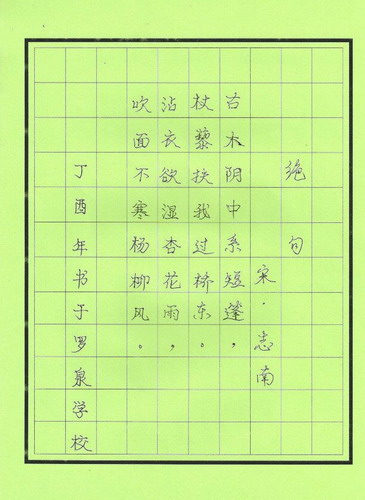 绝句
宋·志南
古木阴中系短蓬，
杖黎扶我过桥东。
沾衣欲湿杏花雨，
吹面不寒杨柳风。
丁酉年书于罗泉学校